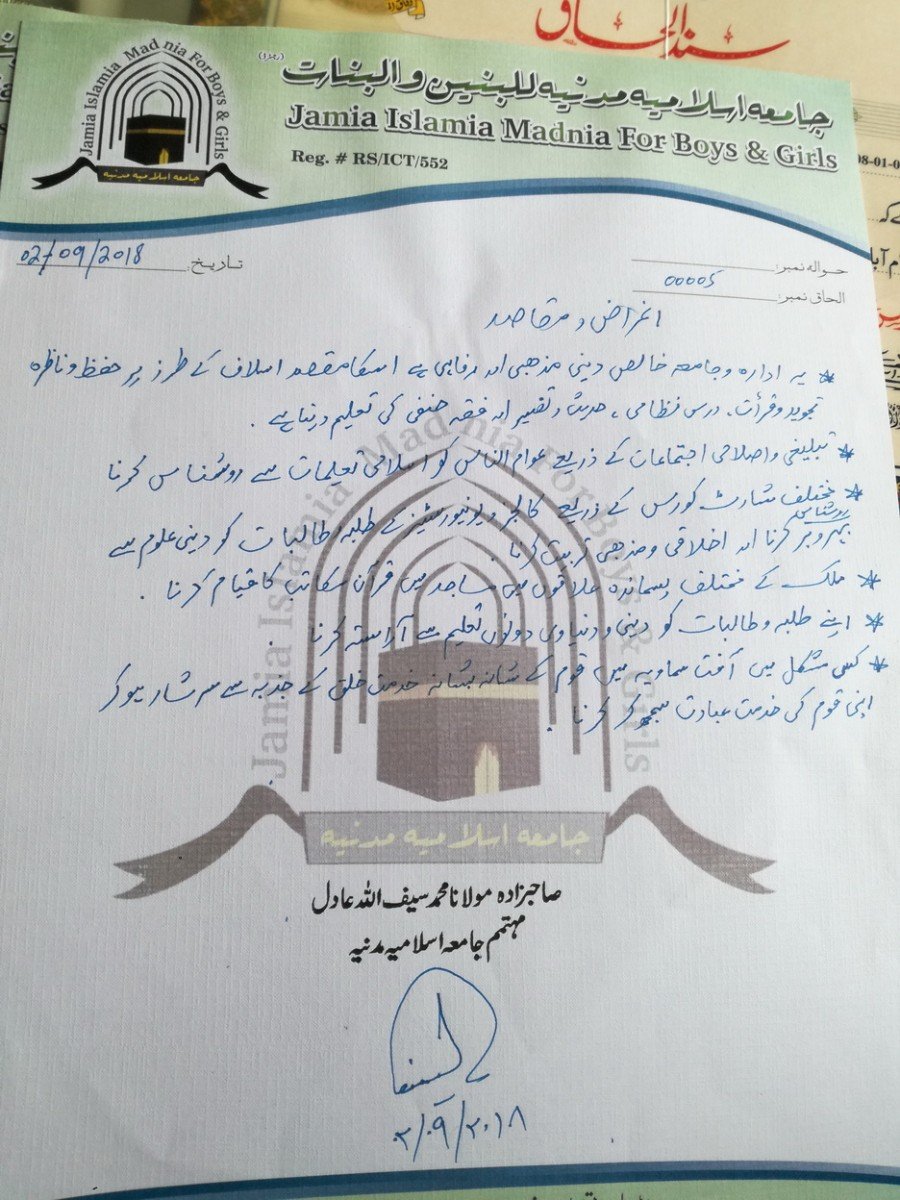 سند الحاق
Jamia Islamia Madnia For Boys & Girls
جامعه اسلامیه مدنیه
جامعه اسلامیه مدنیه للبنین والبنات (رجسٹرڈ)
Jamia Islamia Madnia For Boys & Girls
Reg. # RS/ICT/552
08-01-0
حوالہ نمبر:
تاریخ: 02/09/2018
الحاق نمبر: 00005
اغراض و مقاصد
* یہ ادارہ وجامعہ خالص دینی مذہبی اور رفاہی ہے اسکا مقصد اسلاف کے طرز پر حفظ وناظرہ
تجوید وقرأت، درس نظامی، حدیث وتفسیر اور فقہ حنفی کی تعلیم دینا ہے۔
* تبلیغی واصلاحی اجتماعات کے ذریعے عوام الناس کو اسلامی تعلیمات سے روشناس کرنا
* مختلف شارٹ کورس کے ذریعے کالجز ویونیورسٹیز کے طلبہ وطالبات کو دینی علوم سے
روشناس
بہرہ ور کرنا اور اخلاقی ومذہبی تربیت کرنا۔
* ملک کے مختلف پسماندہ علاقوں میں مساجد میں قرآن مکاتب کا قیام کرنا۔
* اپنے طلبہ وطالبات کو دینی ودنیاوی دونوں تعلیم سے آراستہ کرنا۔
* کسی مشکل میں آفت سماویہ میں قوم کے شانہ بشانہ خدمت خلق کے جذبہ سے سرشار ہوکر
اپنی قوم کی خدمت عبادت سمجھ کر کرنا۔
Jamia Islamia Madnia For Boys & Girls
جامعه اسلامیه مدنیه
صاحبزادہ مولانا محمد سیف اللہ عادل
مہتمم جامعہ اسلامیہ مدنیہ
۰۲/۰۹/۲۰۱۸